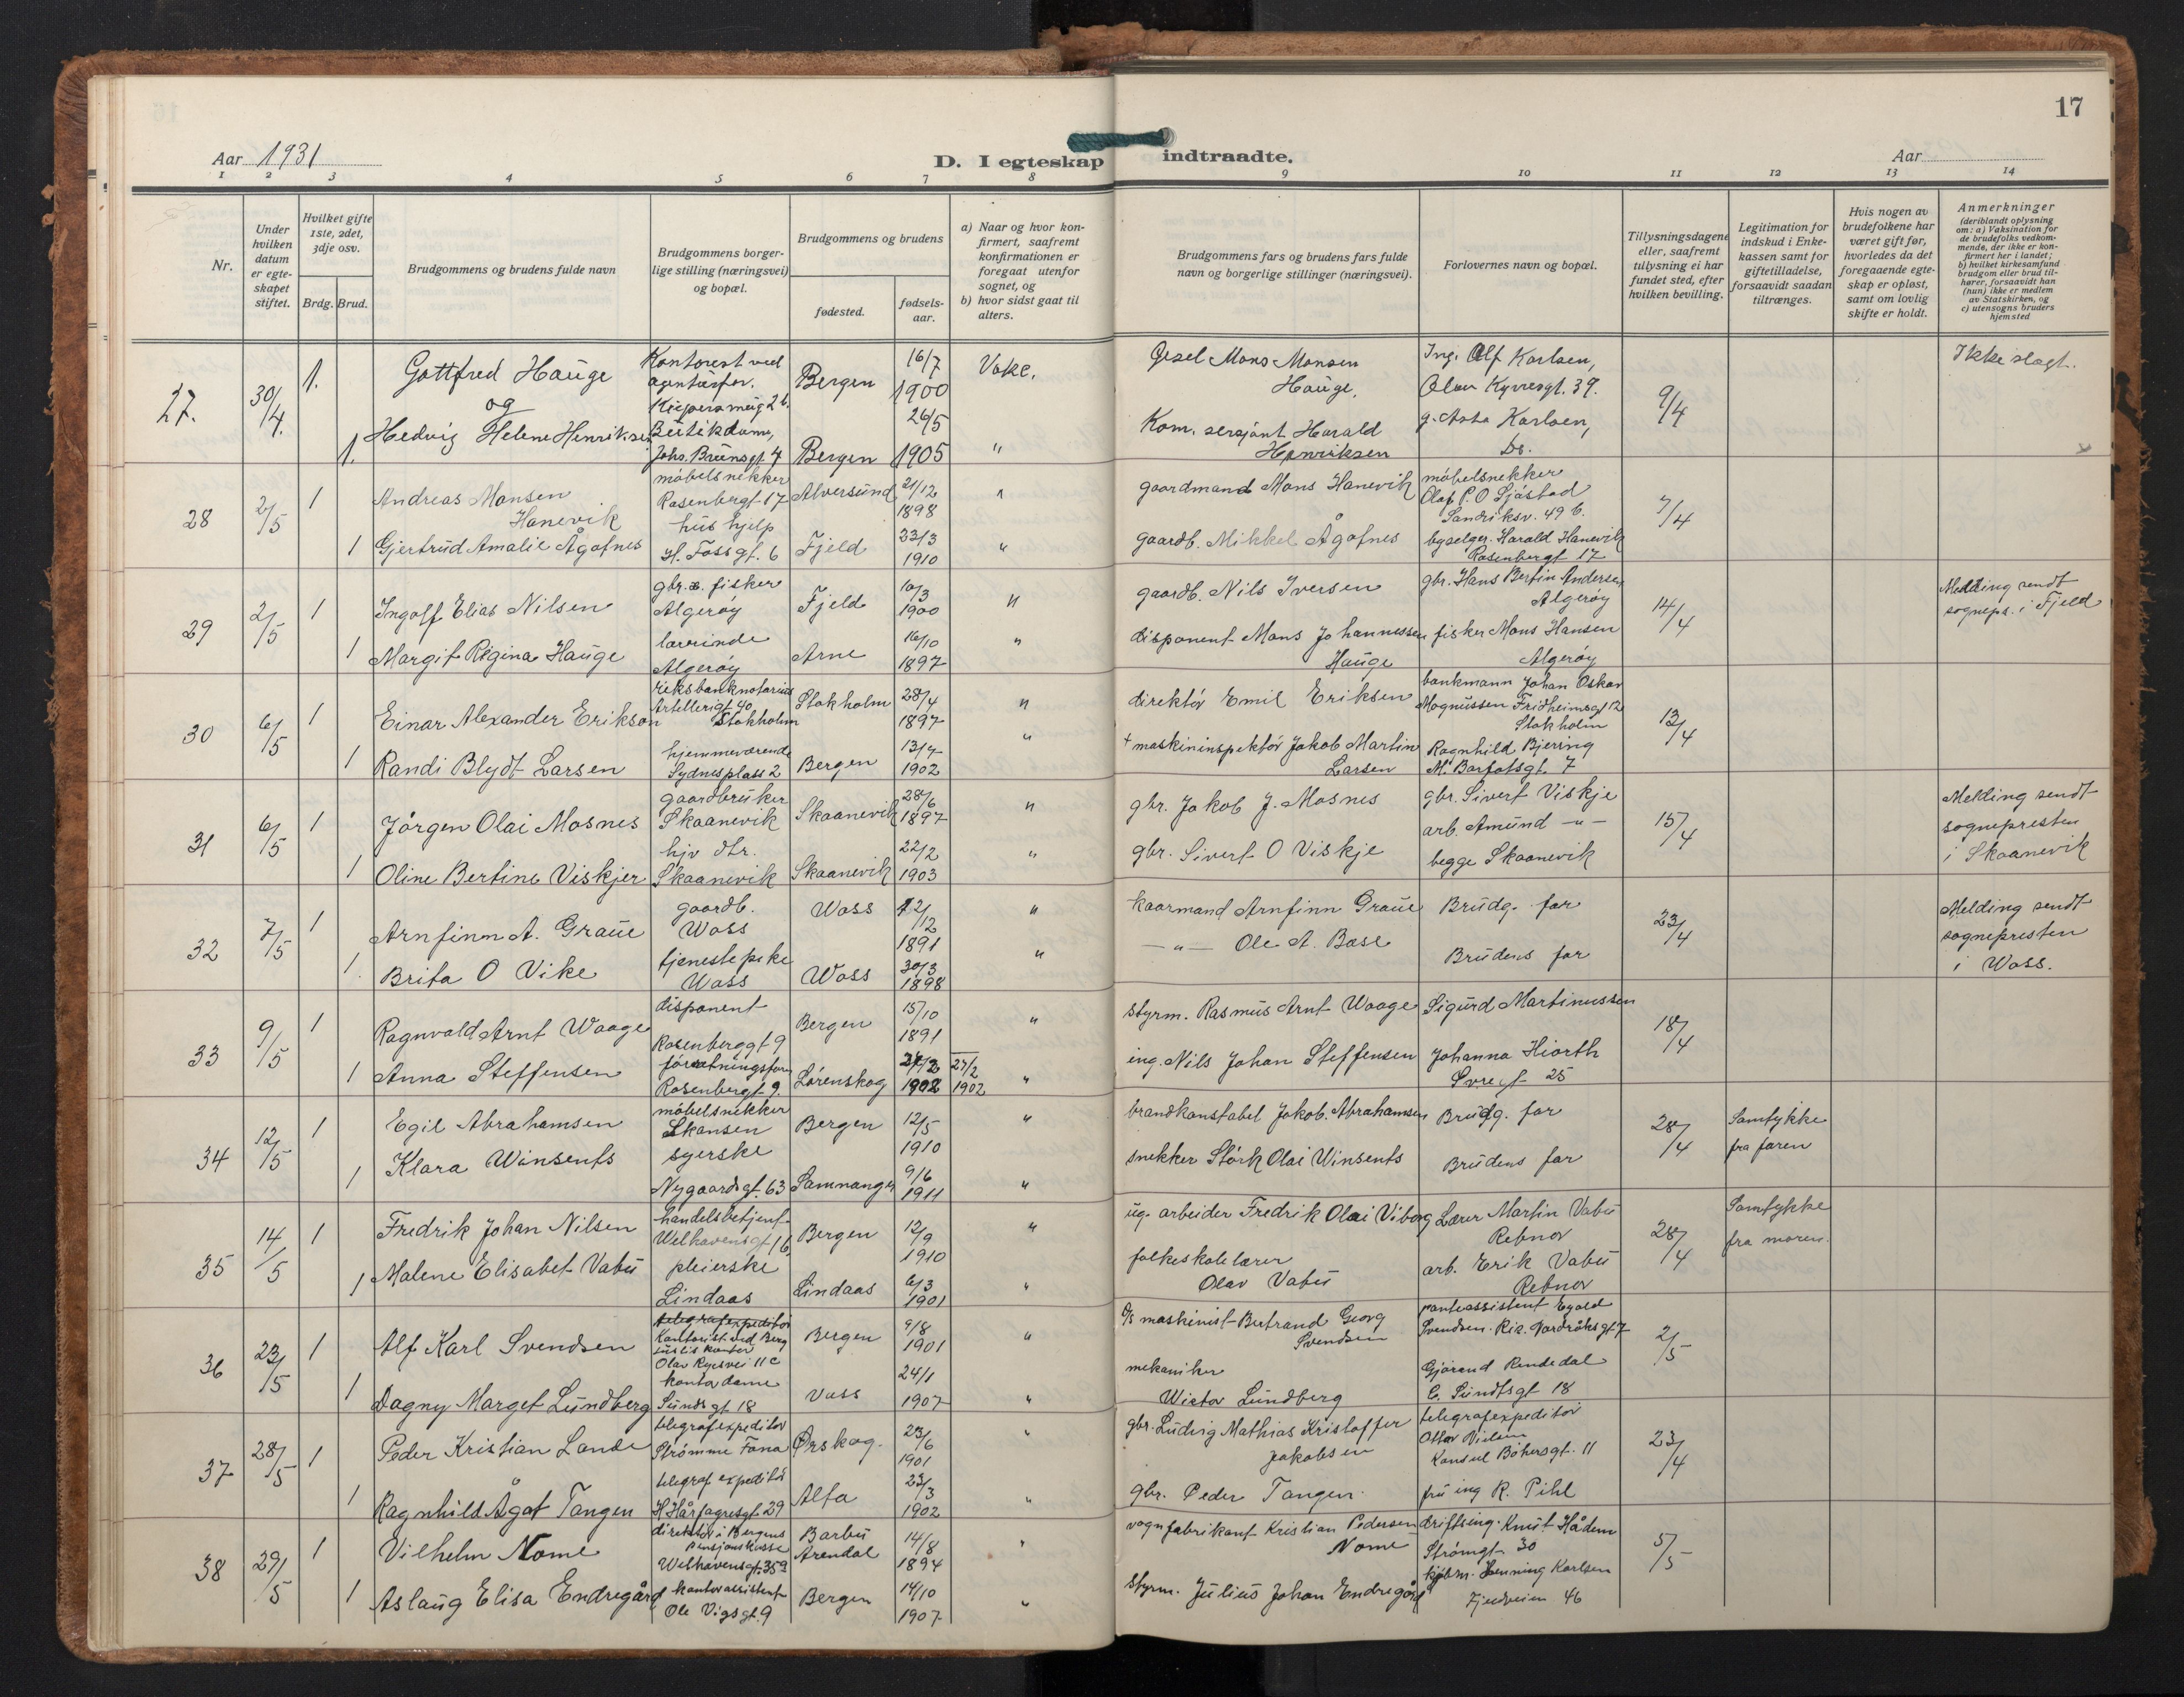 17
Aar 1931
D. I egteskap indtraadte.
Aar
1 2 3 4 5 6 7 8 9 10 11 12 13 14
Nr.
Under hvilken datum er egteskapet stiftet.
Hvilket gifte 1ste, 2det, 3dje osv.
Brdg. Brud.
Brudgommens og brudens fulde navn
Brudgommens borgerlige stilling (næringsvei) og bopæl.
Brudgommens og brudens
fødested.
fødselsaar.
a) Naar og hvor konfirmert, saafremt konfirmationen er foregaat utenfor sognet, og
b) hvor sidst gaat til alters.
Brudgommens fars og brudens fars fulde navn og borgerlige stillinger (næringsvei).
Forlovernes navn og bopæl.
Tillysningsdagene eller, saafremt tillysning ei har fundet sted, efter hvilken bevilling.
Legitimation for indskud i Enkekassen samt for giftetilladelse, forsaavidt saadan tiltrænges.
Hvis nogen av brudefolkene har været gift før, hvorledes da det foregaaende egteskap er opløst, samt om lovlig skifte er holdt.
Anmerkninger
(deriblandt oplysning om: a) Vaksination for de brudefolks vedkommende, der ikke er konfirmert her i landet;
b) hvilket kirkesamfund brudgom eller brud tilhører, forsaavidt han (hun) ikke er medlem av Statskirken, og
c) utensogns bruders hjemsted
27. 30/4. 1. Gottfred Hauge
Kontorest ved agentursfor.
Bergen 16/7 1900
Mons Monsen Hauge,
Ing. Alf Karlsen, Olav Kyrresgt. 39.
9/4
Ikke slegt.
og
1. Hedvig Helene Henriksen
Butikdame, Johs. Bruunsgt. 7
Bergen 26/5 1905 "
Kom. sersjant Harald Henriksen
Asta Karlsen, Do.
28 2/5 1 Andreas Monsen Hanevik
møbelsnekker Rosenbergt 17
Alversund 21/12 1898 "
gaardmand Mons Hanevik
møbelsnekker Olaf P. O Sjåstad Sandviksv. 49 b.
7/4
1 Gjertrud Amalie Ågotnes
hushjelp H. Foss gt. 6
Fjeld 23/3 1910 "
gaardb. Mikkel Ågotnes
byselger. Harald Hanevik Rosenbergt 17
29 2/5 1 Ingolf Elias Nilsen
gbr. fisker Algerøy
Fjeld 10/3 1900 "
gaardb. Nils Iversen
gbr. Hans Bertin Andersen Algerøy
14/4
Melding sendt sognepr. i Fjeld
1 Margit Regina Hauge
lærerinde Algerøy
Arne 16/10 1897 "
disponent Mons Johannessen Hauge
fisker Mons Hansen Algerøy
30 6/5 1 Einar Alexander Erikson
riksbanknotarius Artellerigt 40 Stokholm
Stokholm 28/4 1897 "
direktør Emil Eriksen
bankmann Johan Oskar Magnussen Fridheimsgt 12 Stokholm
13/4
1 Randi Blydt Larsen
hjemmeværende Sydnesplass 2
Bergen 13/7 1902 "
+ maskininspektør Jakob Martin Larsen
Ragnhild Bjering M. Barfotsgt. 7
31 6/5 1 Jørgen Olai Mosnes
gaardbruker Skaanevik
Skaanevik 28/6 1897 "
gbr. Jakob J. Mosnes
gbr. Sivert Viskje
15/4
Melding sendt sognepresten i Skaanevik
1 Oline Bertine Viskjer
hjv dtr. Skaanevik
Skaanevik 22/2 1903 "
gbr. Sivert O Viskje
arb. Amund —"— begge Skaanevik
32 7/5 1 Arnfinn A. Graue
gaardb. Woss
Woss 12/12 1891 "
kaarmand Arnfinn Graue
Brudg. far
23/4
Melding sendt sognepresten i Woss.
1. Brita O Vike
tjenestepike Woss
Woss 30/3 1898 "
—"— Ole A. Base
Brudens far
33 9/5 1 Ragnvald Arnt Waage
disponent Rosenberggt 9
Bergen 15/10 1891 "
styrm. Rasmus Arnt Waage
Sigurd Martinussen
18/4
1 Anna Steffensen
Rosenbergt 9.
Lørenskog 1902 23/2 1902 "
ing. Nils Johan Steffensen
Johanna Hiorth 25
34 12/5 1 Egil Abrahamsen
møbelsnekker Skansen
Bergen 12/5 1910 "
brandkonstabel Jakob. Abrahamsen
Brudg. far
28/4
Samtykke fra faren
1 Klara Winsents
syerske Nygaardsgt. 63
Samnanger 9/6 1911 "
snekker Størk Olai Winsents
Brudens far
35 14/5 1 Fredrik Johan Nilsen
handelsbetjent Welhavensgt 16
Bergen 12/9 1910 "
ug. arbeider Fredrik Olai Viborg
Lærer Martin Vabu Rebnor
28/4
Samtykke fra moren.
1 Malene Elisabet Vabu
pleierske Lindaas
Lindaas 6/3 1901 "
folkeskolelærer Olav Vabu
arb. Erik Vabu Rebnor
36 23/5 1 Alf Karl Svendsen
telegrafexpeditør
Kontorist ved Berg Olav Ryesvei 11 c
Bergen 9/8 1901 "
maskinist Bertrand Georg Svendsen
Svendsen. Nordråksgt 7
2/5
1 Dagny Marget Lundberg
kontordame Sundsgt 18
Voss 24/1 1907 "
mekaniker Victor Lundberg
Rendedal C. Sundtsgt 18
37 28/5 1 Peder Kristian Lande
telegrafexpeditør Strømme Fana
Ørskog. 23/6 1901 "
gbr. Ludvig Mathias Kristoffer Jakobsen
telegrafexpeditør Ottar Nielsen Konsul Böhersgt. 11
23/4
1 Ragnhild Ågot Tangen
telegrafexpeditør H Hårfagresgt 29
Alta 23/3 1902 "
gbr. Peder Tangen.
fru ing R. Pihl
38 29/5 1 Vilhelm Nome
direktør i Bergens pensjonskasse Welhavensgt. 35
Barbu Arendal 14/8 1894 "
vognfabrikant Kristian Pedersen Nome
driftsing. Knut Hådem Strømgt 30
5/5
1 Aslaug Elisa Endregård
kontorassistent Ole Vigsgt. 9
Bergen 14/10 1907 "
styrm. Julius Johan Endregård
kjøbm. Henning Karlsen 46